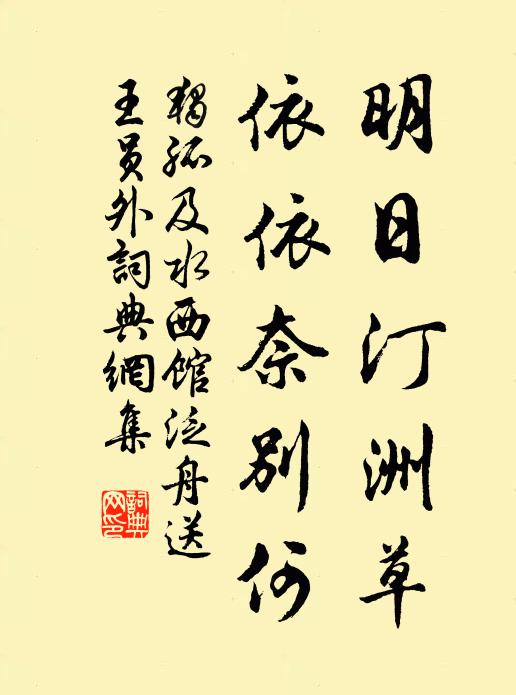 明日汀洲草
依依奈别何
独孤及水西馆泛舟送
王員外詞典網集
詞典
网印